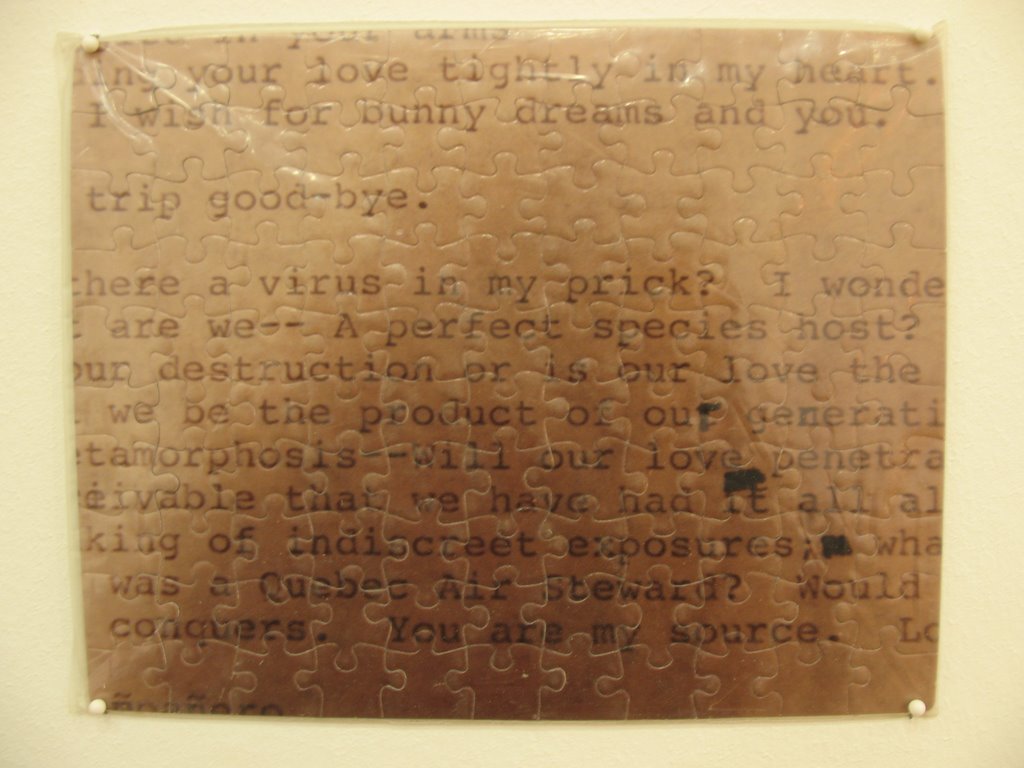 in your arms
ing your love tightly in my heart.
I wish for bunny dreams and you.
trip good-bye.
there a virus in my prick? I wonde
t are we-- A perfect species host?
our destruction or is our love the
we be the product of our generati
etamorphosis--Will our love penetra
ceivable that we have had it all al
king of indiscreet exposures; wha
was a Quebec Air Steward? Would
conquers. You are my source. Lo